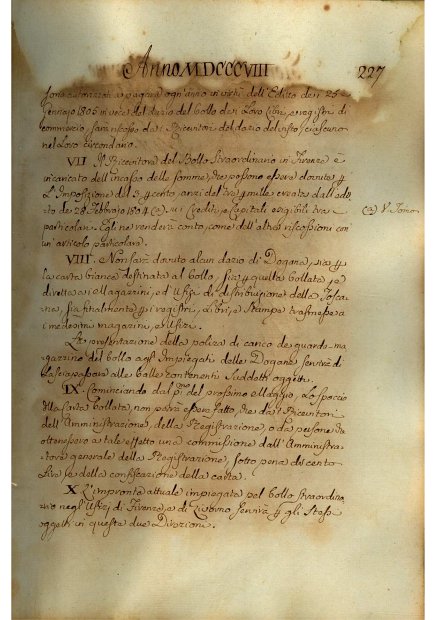 Anno MDCCCVIII
227
sono autorizzati a pagare ogn'anno in virtù dell'Editto de' 25
Gennajo 1805 in vece del dazio del bollo dei Loro libri, e registri di
commercio, sarà riscosso da i Ricevitori del dazio del ciascuno
nel Loro circondario.
VII Il Ricevitore del Bollo Straordinario in Firenze è
incaricato dell'incasso delle somme, che possono essere dovute
L'Imposizione del 3 cento, anzi del tre mille creata dall'edit
to de' 28 Febbrajo 1804 (a) su i Crediti, e Capitali esigibili tra
(a) V. Tomo
particolari. Egli ne renderà conto, come dell'altre riscossioni con
un'articolo particolare.
VIII. Non sarà dovuto alcun dazio di Dogana, sia
la carta bianca destinata al bollo, sia quella bollata, e
diretta a i Magazzini, ed Ufizi di distribuzione della Tosca
na, sia finalmente i registri, Libri, e Stampe trasmesse a
i medesimi magazzini, ed Ufizi.
La presentazione della polizza di carico de guarda ma
gazzino del bollo agl'Impiegati delle Dogane servirà di
Lasciapassare alle balle contenenti suddetti oggetti.
IX. Cominciando dal p.mo del prossimo Maggio, Lo spaccio
della Carta bollata, non potrà essere fatto, che da i Ricevitori
dell'Amministrazione, della Registrazione, o da persone che
ottenessero a tale effetto una commissione dall'Amministra-
tore generale della Registrazione, sotto pena di cento
Lire e della confiscazione della carta.
X L'impronta attuale impiegata pel bollo straordina
rio negl'Ufizj di Firenze, e di Livorno servirà gli stessi
oggetti in queste due Direzioni.